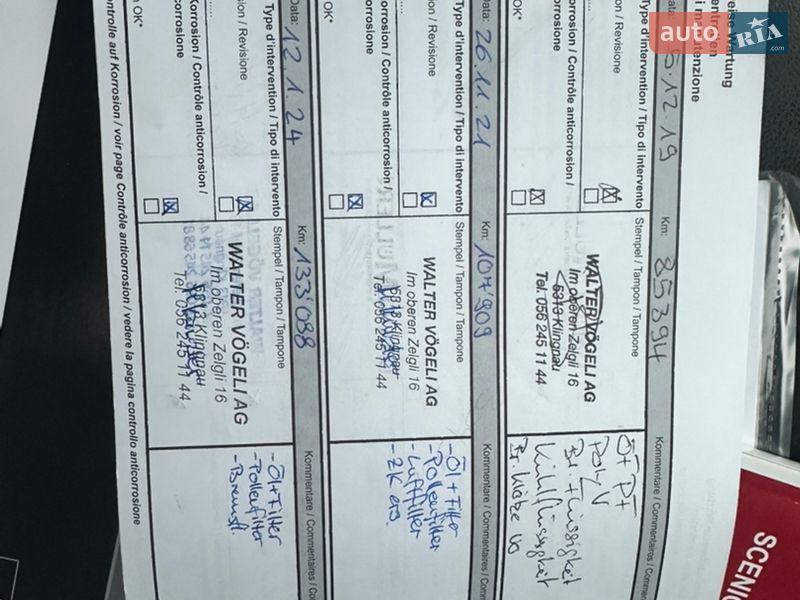 auto RIA
.com
5.12.19
Km: 85394
Stempel / Tampon / Tampone
Kommentare / Commentaires / Co
WALTER VÖGELI AG
Im oberen Zelgli 16
5313 Klingnau
Tel. 056 245 11 44
ÖF PF
Poly V
Br. flüssigkeit
Kühlflüssigkeit
OK*
Data: 26.11.21
Km: 104'909
Type d'intervention / Tipo di intervento
Stempel / Tampon / Tampone
Kommentare / Commentaires / Com
ion / Revisione
ion / Contrôle anticorrosion /
rosione
OK*
WALTER VÖGELI AG
Im oberen Zelgli 16
5313 Klingnau
Tel. 056 245 11 44
- Öl + Filter
- Pollenfilter
- Luftfilter
- ZK ers.
Data: 12.1.24
Km: 133'088
Type d'intervention / Tipo di intervento
Stempel / Tampon / Tampone
Kommentare / Commentaires / Co
ion / Revisione
osion / Contrôle anticorrosion /
rosione
n OK*
WALTER VÖGELI AG
Im oberen Zelgli 16
5313 Klingnau
Tel. 056 245 11 44
- Öl + Filter
- Pollenfilter
- Bremsfl.
ontrolle auf Korrosion / voir page Contrôle anticorrosion / vedere la pagina controllo anticorrosione
SCENIC